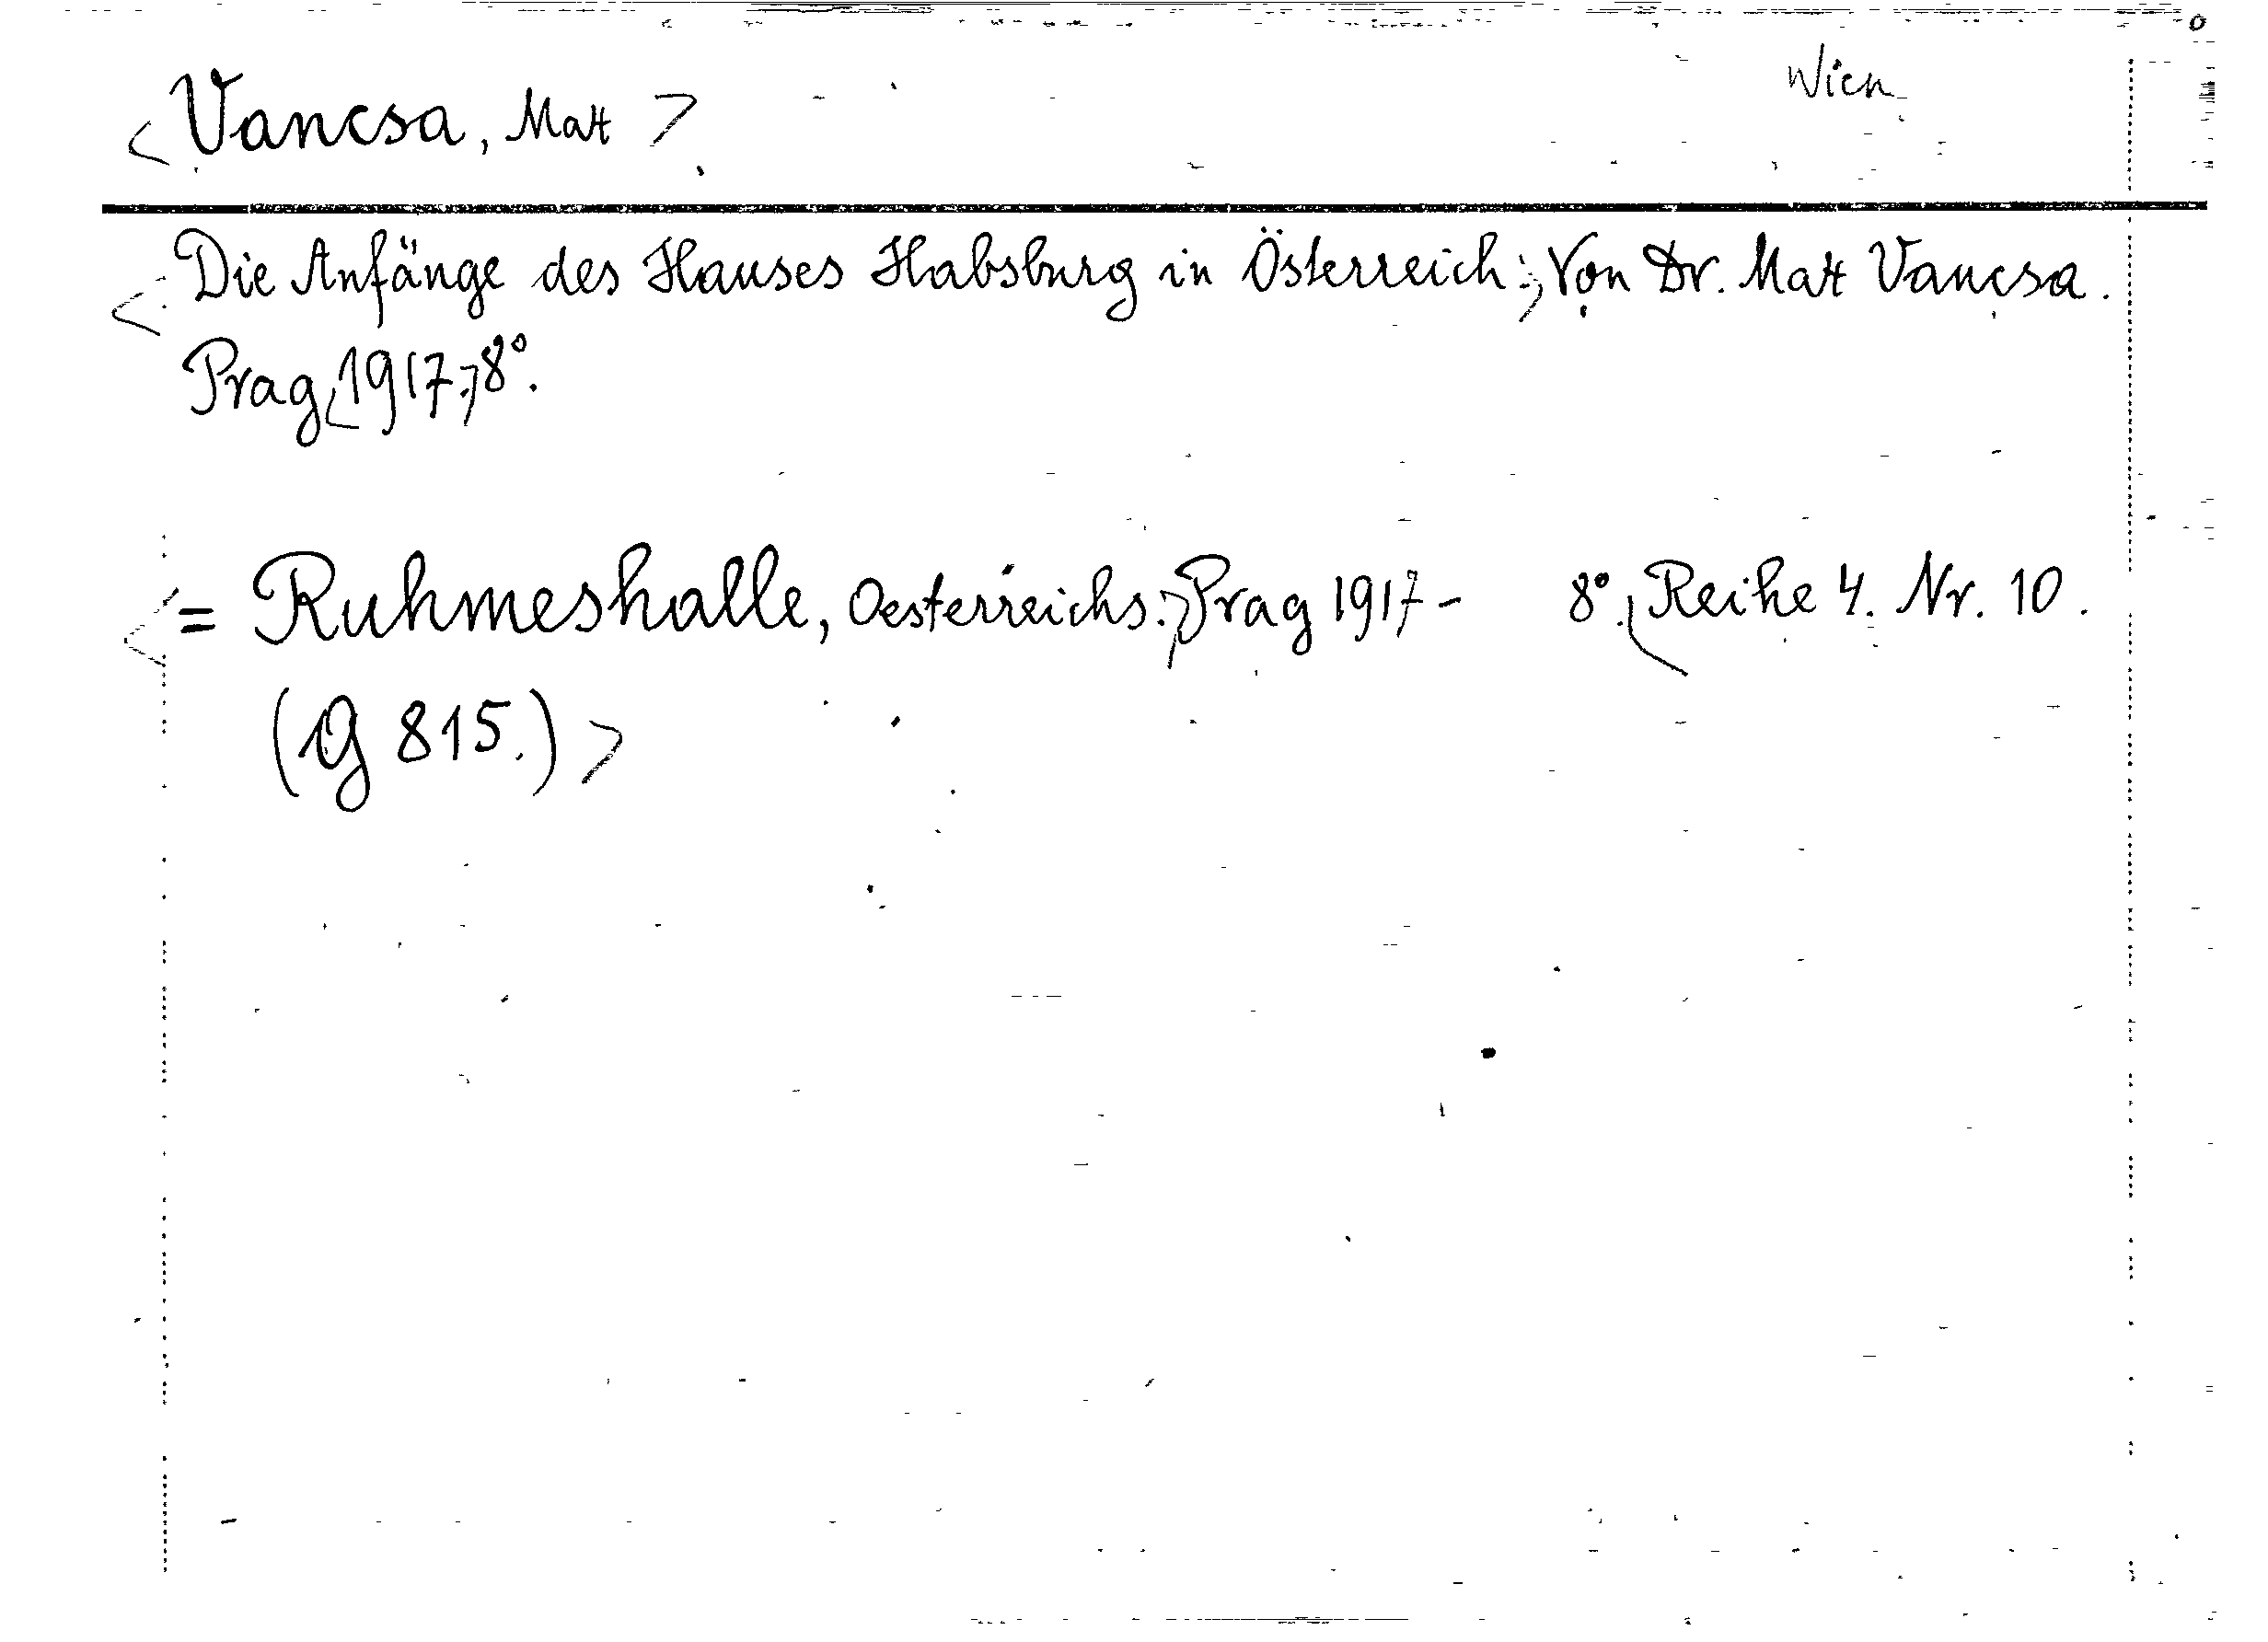 Wien
<Vancsa, Matt>
<Die Anfänge des Hauses Habsburg in Österreich:> Von Dr. Matt Vancsa.
Prag <1917.> 8°.
<= Ruhmeshalle, Oesterreichs.> Prag 1917- 8°. <Reihe 4. Nr. 10.
(G 815.)>